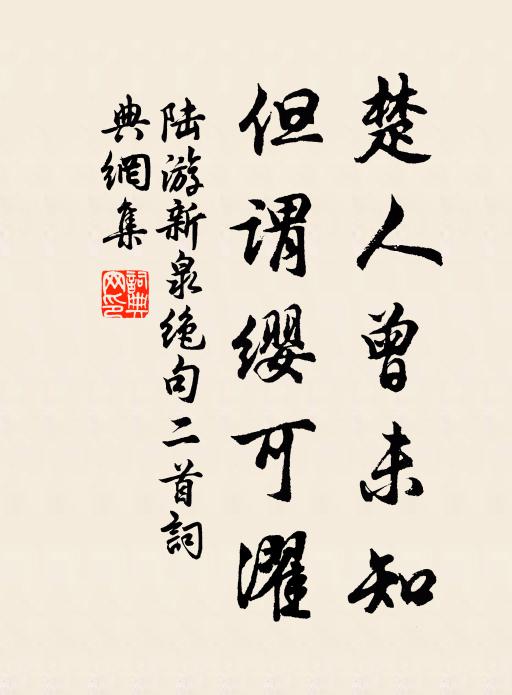 楚人曾未知
但谓缨可濯
陆游新泉绝句二首词
典网集
词典
网印